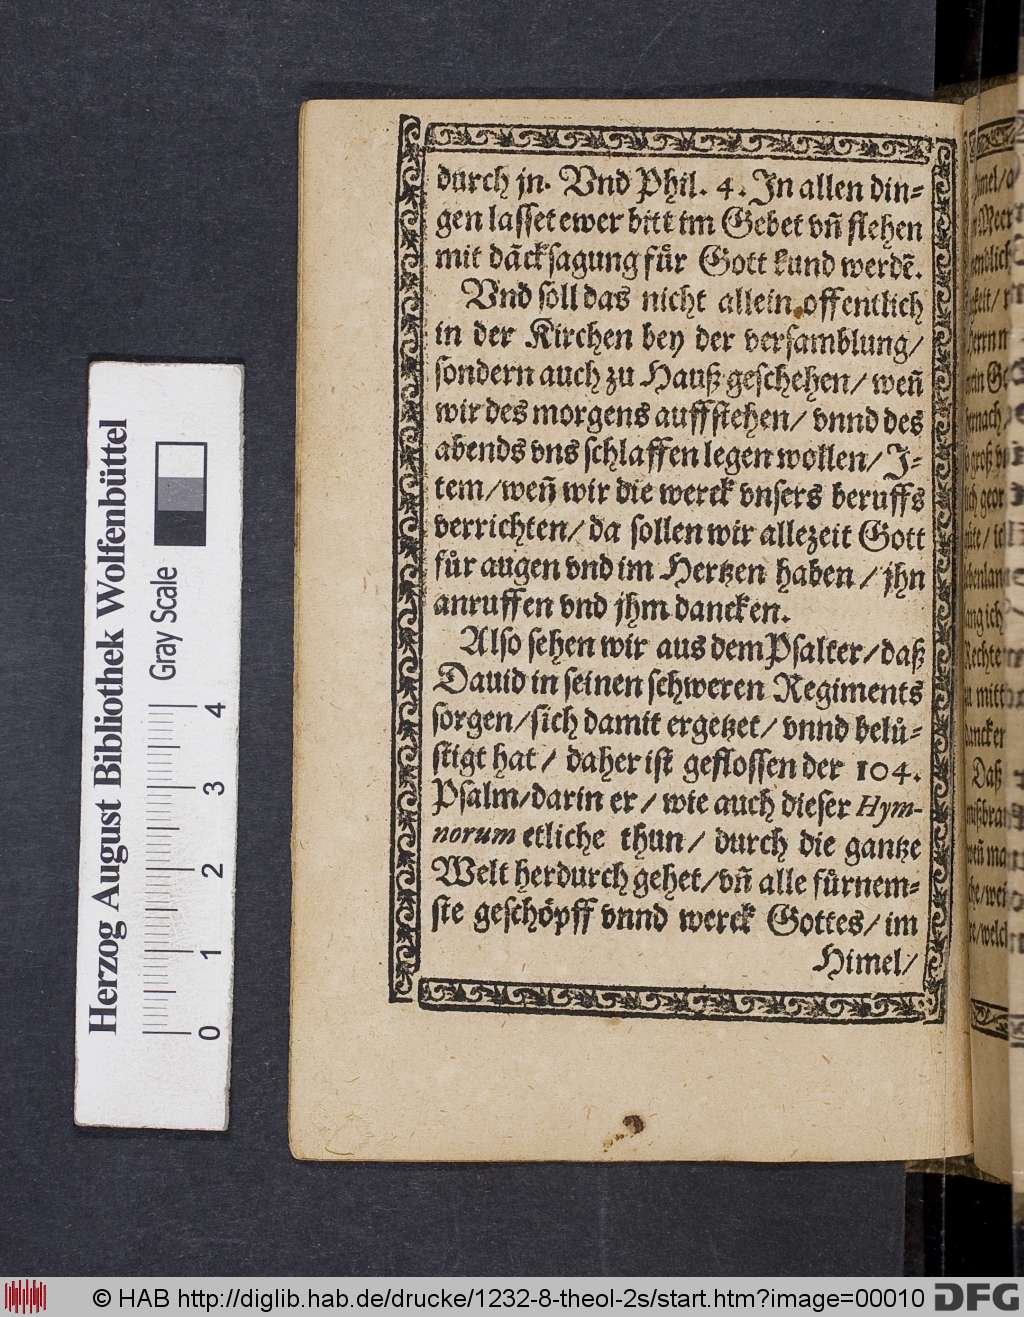 durch jn. Vnd Phil. 4. In allen din⸗
gen lasset ewer bitt im Gebet vñ flehen
mit dãcksagung fuͤr Gott kund werdẽ.
Vnd soll das nicht allein offentlich
in der Kirchen bey der versamblung/
sondern auch zu Hauß geschehen/ weñ
wir des morgens auffstehen/ vnnd des
abends vns schlaffen legen wollen/ J⸗
tem/ weñ wir die werck vnsers beruffs
verrichten/ da sollen wir allezeit Gott
fuͤr augen vnd im Hertzen haben/ jhn
anruffen vnd jhm dancken.
Also sehen wir aus dem Psalter/ daß
Dauid in seinen schweren Regiments
sorgen/ sich damit ergetzet/ vnnd beluͤ⸗
stigt hat/ daher ist geflossen der 104.
Psalm/ darin er/ wie auch dieser Hym-
norum etliche thun/ durch die gantze
Welt herdurch gehet/ vñ alle fuͤrnem⸗
ste geschöpff vnnd werck Gottes/ im
Himel/
Herzog August Bibliothek Wolfenbüttel
Gray Scale
0 1 2 3 4
© HAB http://diglib.hab.de/drucke/1232-8-theol-2s/start.htm?image=00010
DFG